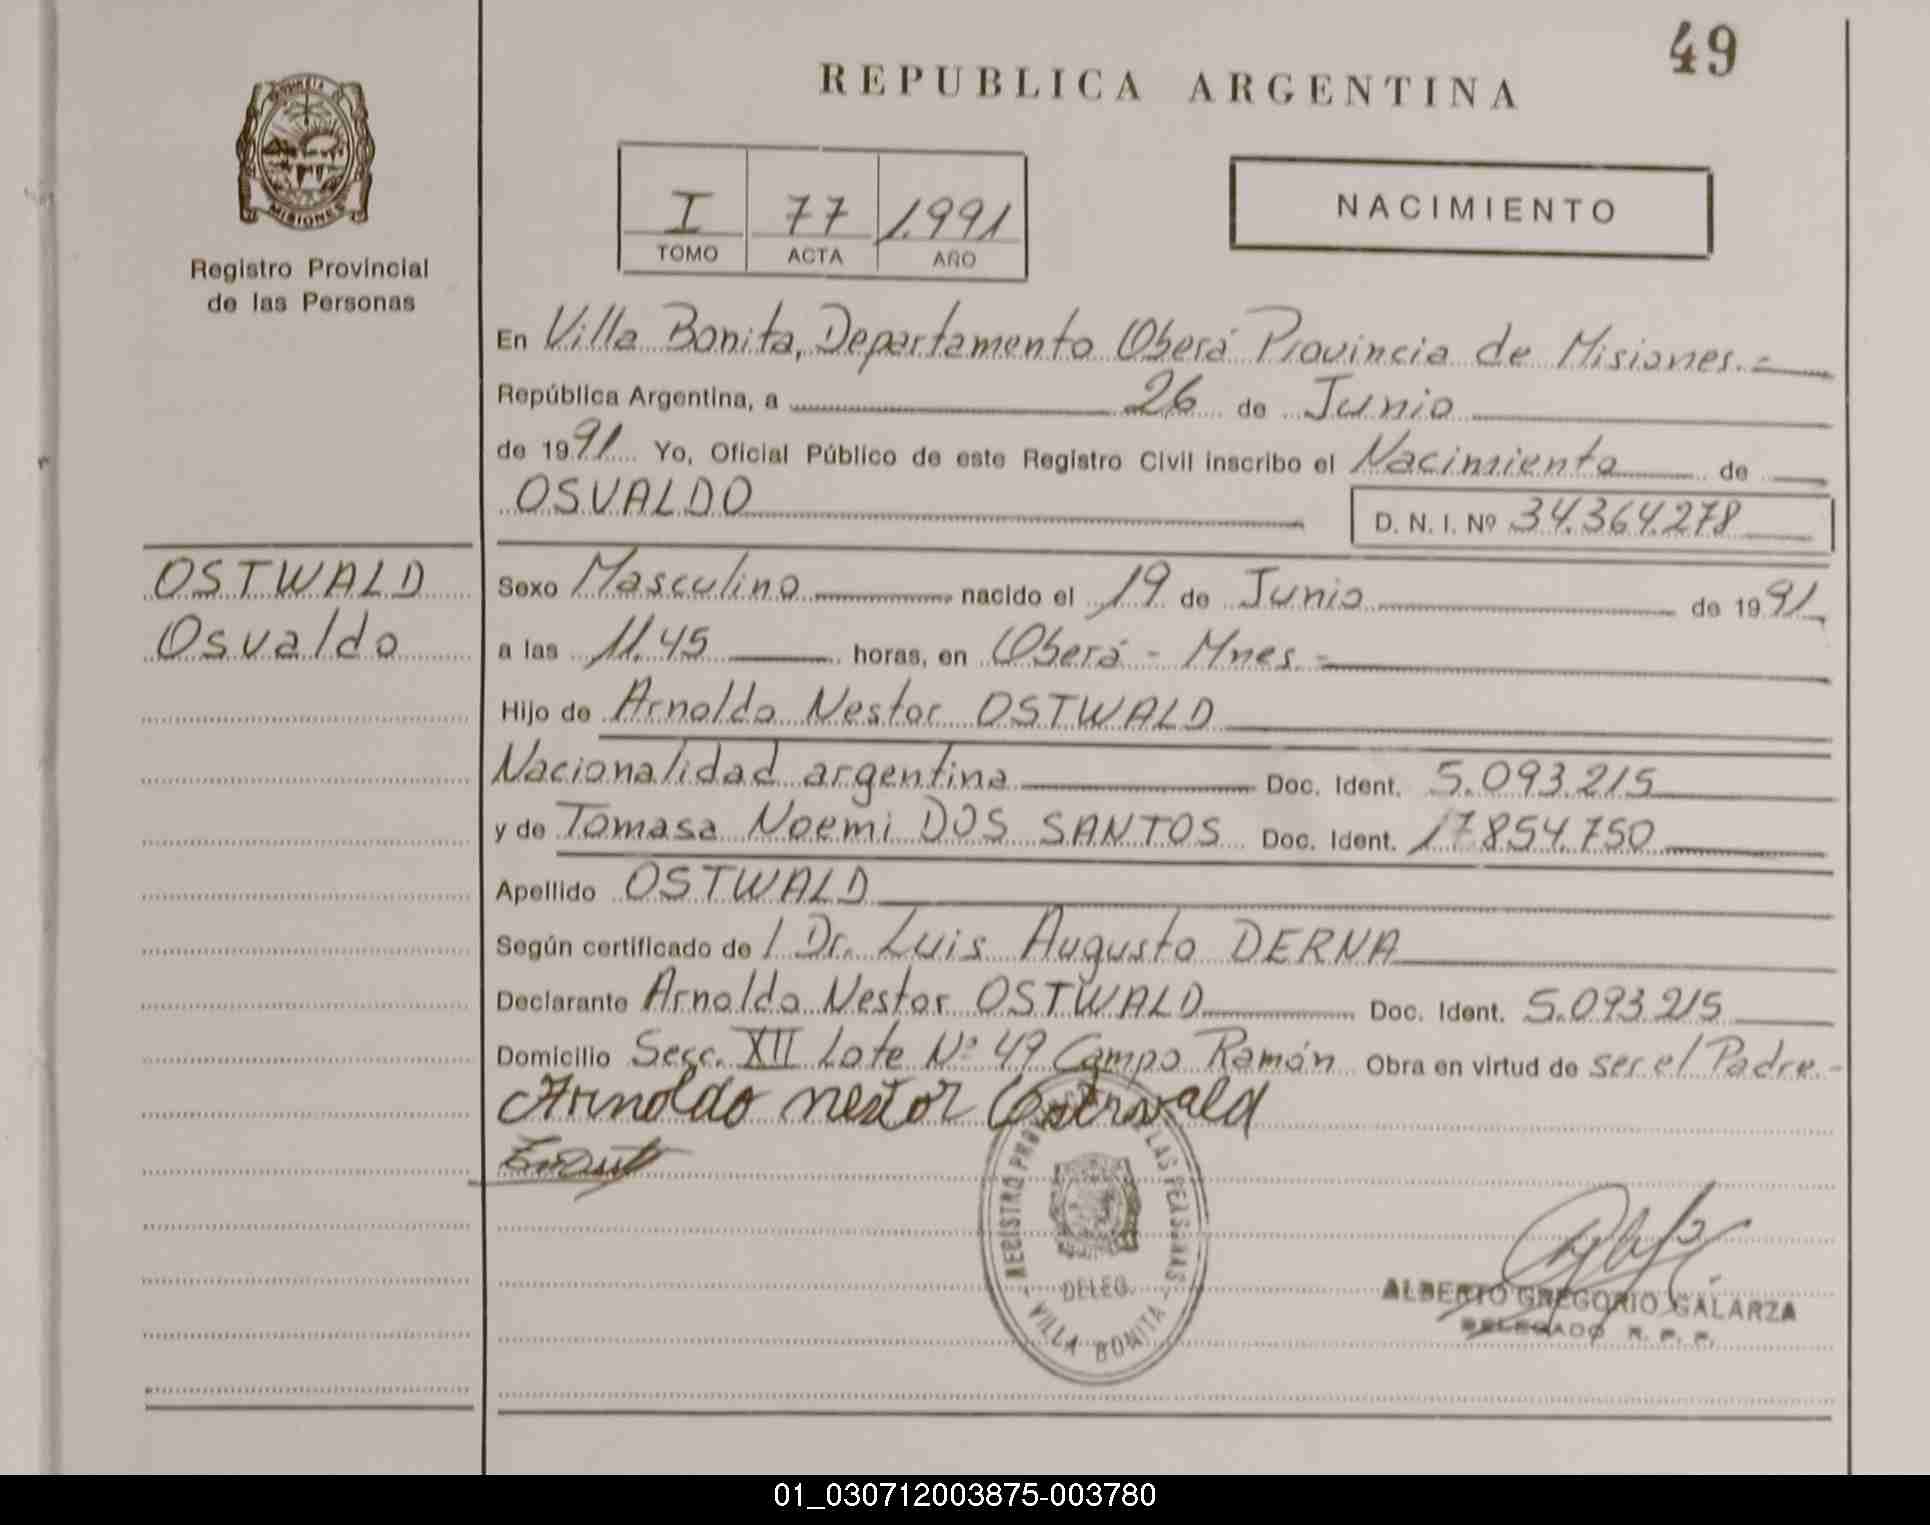 49
REPUBLICA ARGENTINA
MISIONES
Registro Provincial
de las Personas
I 77 1.991
TOMO ACTA AÑO
NACIMIENTO
En Villa Bonita, Departamento Oberá Provincia de Misiones.=
República Argentina, a 26 de Junio
de 1991 Yo, Oficial Público de este Registro Civil inscribo el Nacimiento de
OSVALDO
D. N. I. Nº 34.364.278
OSTWALD
Osvaldo
Sexo Masculino nacido el 19 de Junio de 1991
a las 11.45 horas, en Oberá - Mnes.-
Hijo de Arnoldo Nestor OSTWALD
Nacionalidad argentina Doc. Ident. 5.093.215
y de Tomasa Noemi DOS SANTOS Doc. Ident. 17854.750
Apellido OSTWALD
Según certificado de l Dr. Luis Augusto DERNA
Declarante Arnoldo Nestor OSTWALD Doc. Ident. 5.093.215
Domicilio Secc. XII Lote Nº 49 Campo Ramón Obra en virtud de ser el Padre.-
Arnoldo nestor Ostwald
REGISTRO PROV LAS PERSONAS
DELEG.
- VILLA BONITA -
ALBERTO GREGORIO GALARZA
DELEGADO R. P. P.
01_030712003875-003780